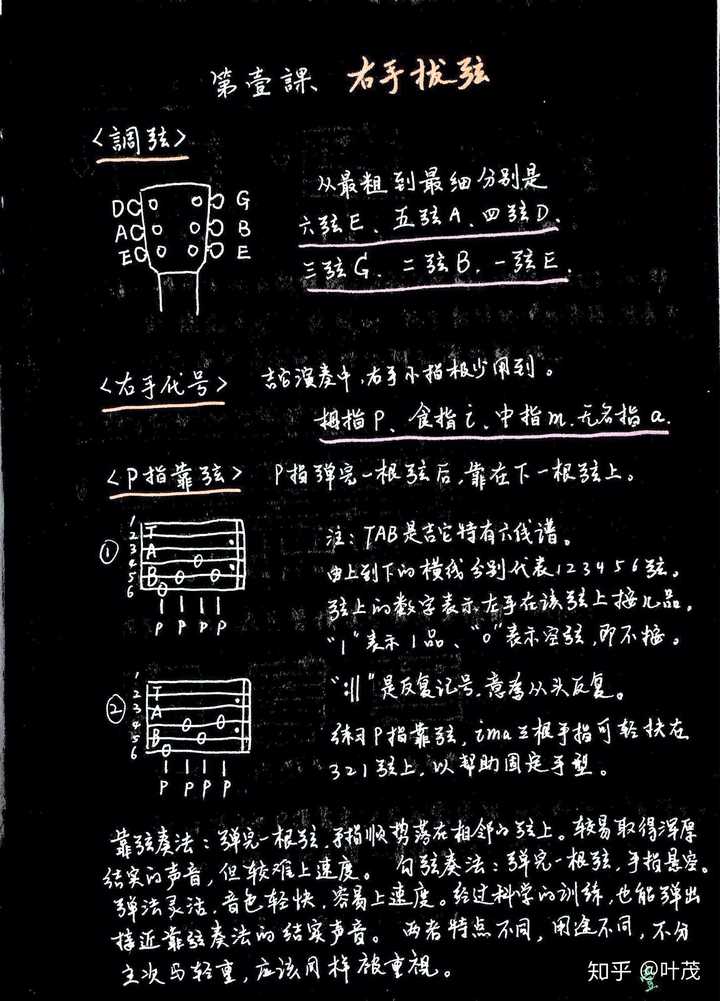 第壹課 右手拨弦
<調弦>
D G
A B
E E
从最粗到最细分别是
六弦E、五弦A、四弦D、
三弦G、二弦B、一弦E.
<右手代号> 吉它演奏中,右手小指极少用到。
拇指P、食指i、中指m.无名指a.
<P指靠弦> P指弹完一根弦后,靠在下一根弦上。
①
1
2
3
4
5
6
T
A
B
0 0 0 0
P P P P
注:TAB是吉它特有六线谱。
由上到下的横线分别代表123456弦。
弦上的数字表示左手在该弦上按几品。
"1"表示1品、"0"表示空弦,即不按。
②
1
2
3
4
5
6
T
A
B
0 0 0 0
P P P P
":||"是反复记号,意为从头反复。
练习P指靠弦,ima三根手指可轻扶在
321弦上,以帮助固定手型。
靠弦奏法:弹完一根弦,手指顺势落在相邻的弦上。较易取得浑厚
结实的声音,但较难上速度。 勾弦奏法:弹完一根弦,手指悬空。
弹法灵活,音色轻快,容易上速度。经过科学的训练,也能弹出
接近靠弦奏法的结实声音。 两者特点不同,用途不同,不分
主次与轻重,应该同样被重视。
知乎 @叶茂
壹